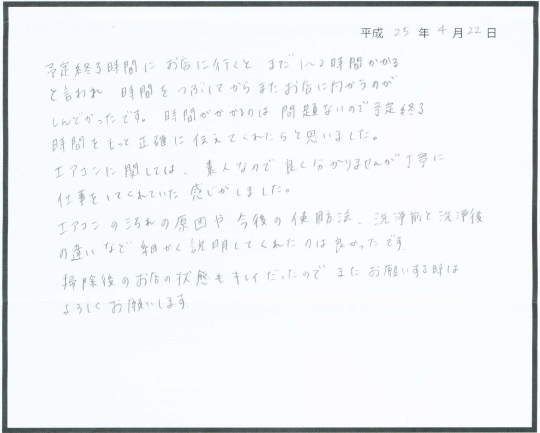 平成 25 年 4 月 22 日
予定終了時間に お店に行くと まだ 1〜2時間かかる
と言われ 時間を つぶしてから またお店に向かうのが
しんどかったです。 時間がかかるのは 問題ないので 予定終了
時間を もっと正確に 伝えてくれたらと思いました。
エアコンに関しては、 素人なので 良く分かりませんが 丁寧に
仕事をしてくれていた 感じがしました。
エアコンの汚れの原因や 今後の使用方法、 洗浄前と洗浄後
の違いなど 細かく説明してくれたのは 良かったです
掃除後のお店の状態も キレイだったので またお願いする時は
よろしくお願いします